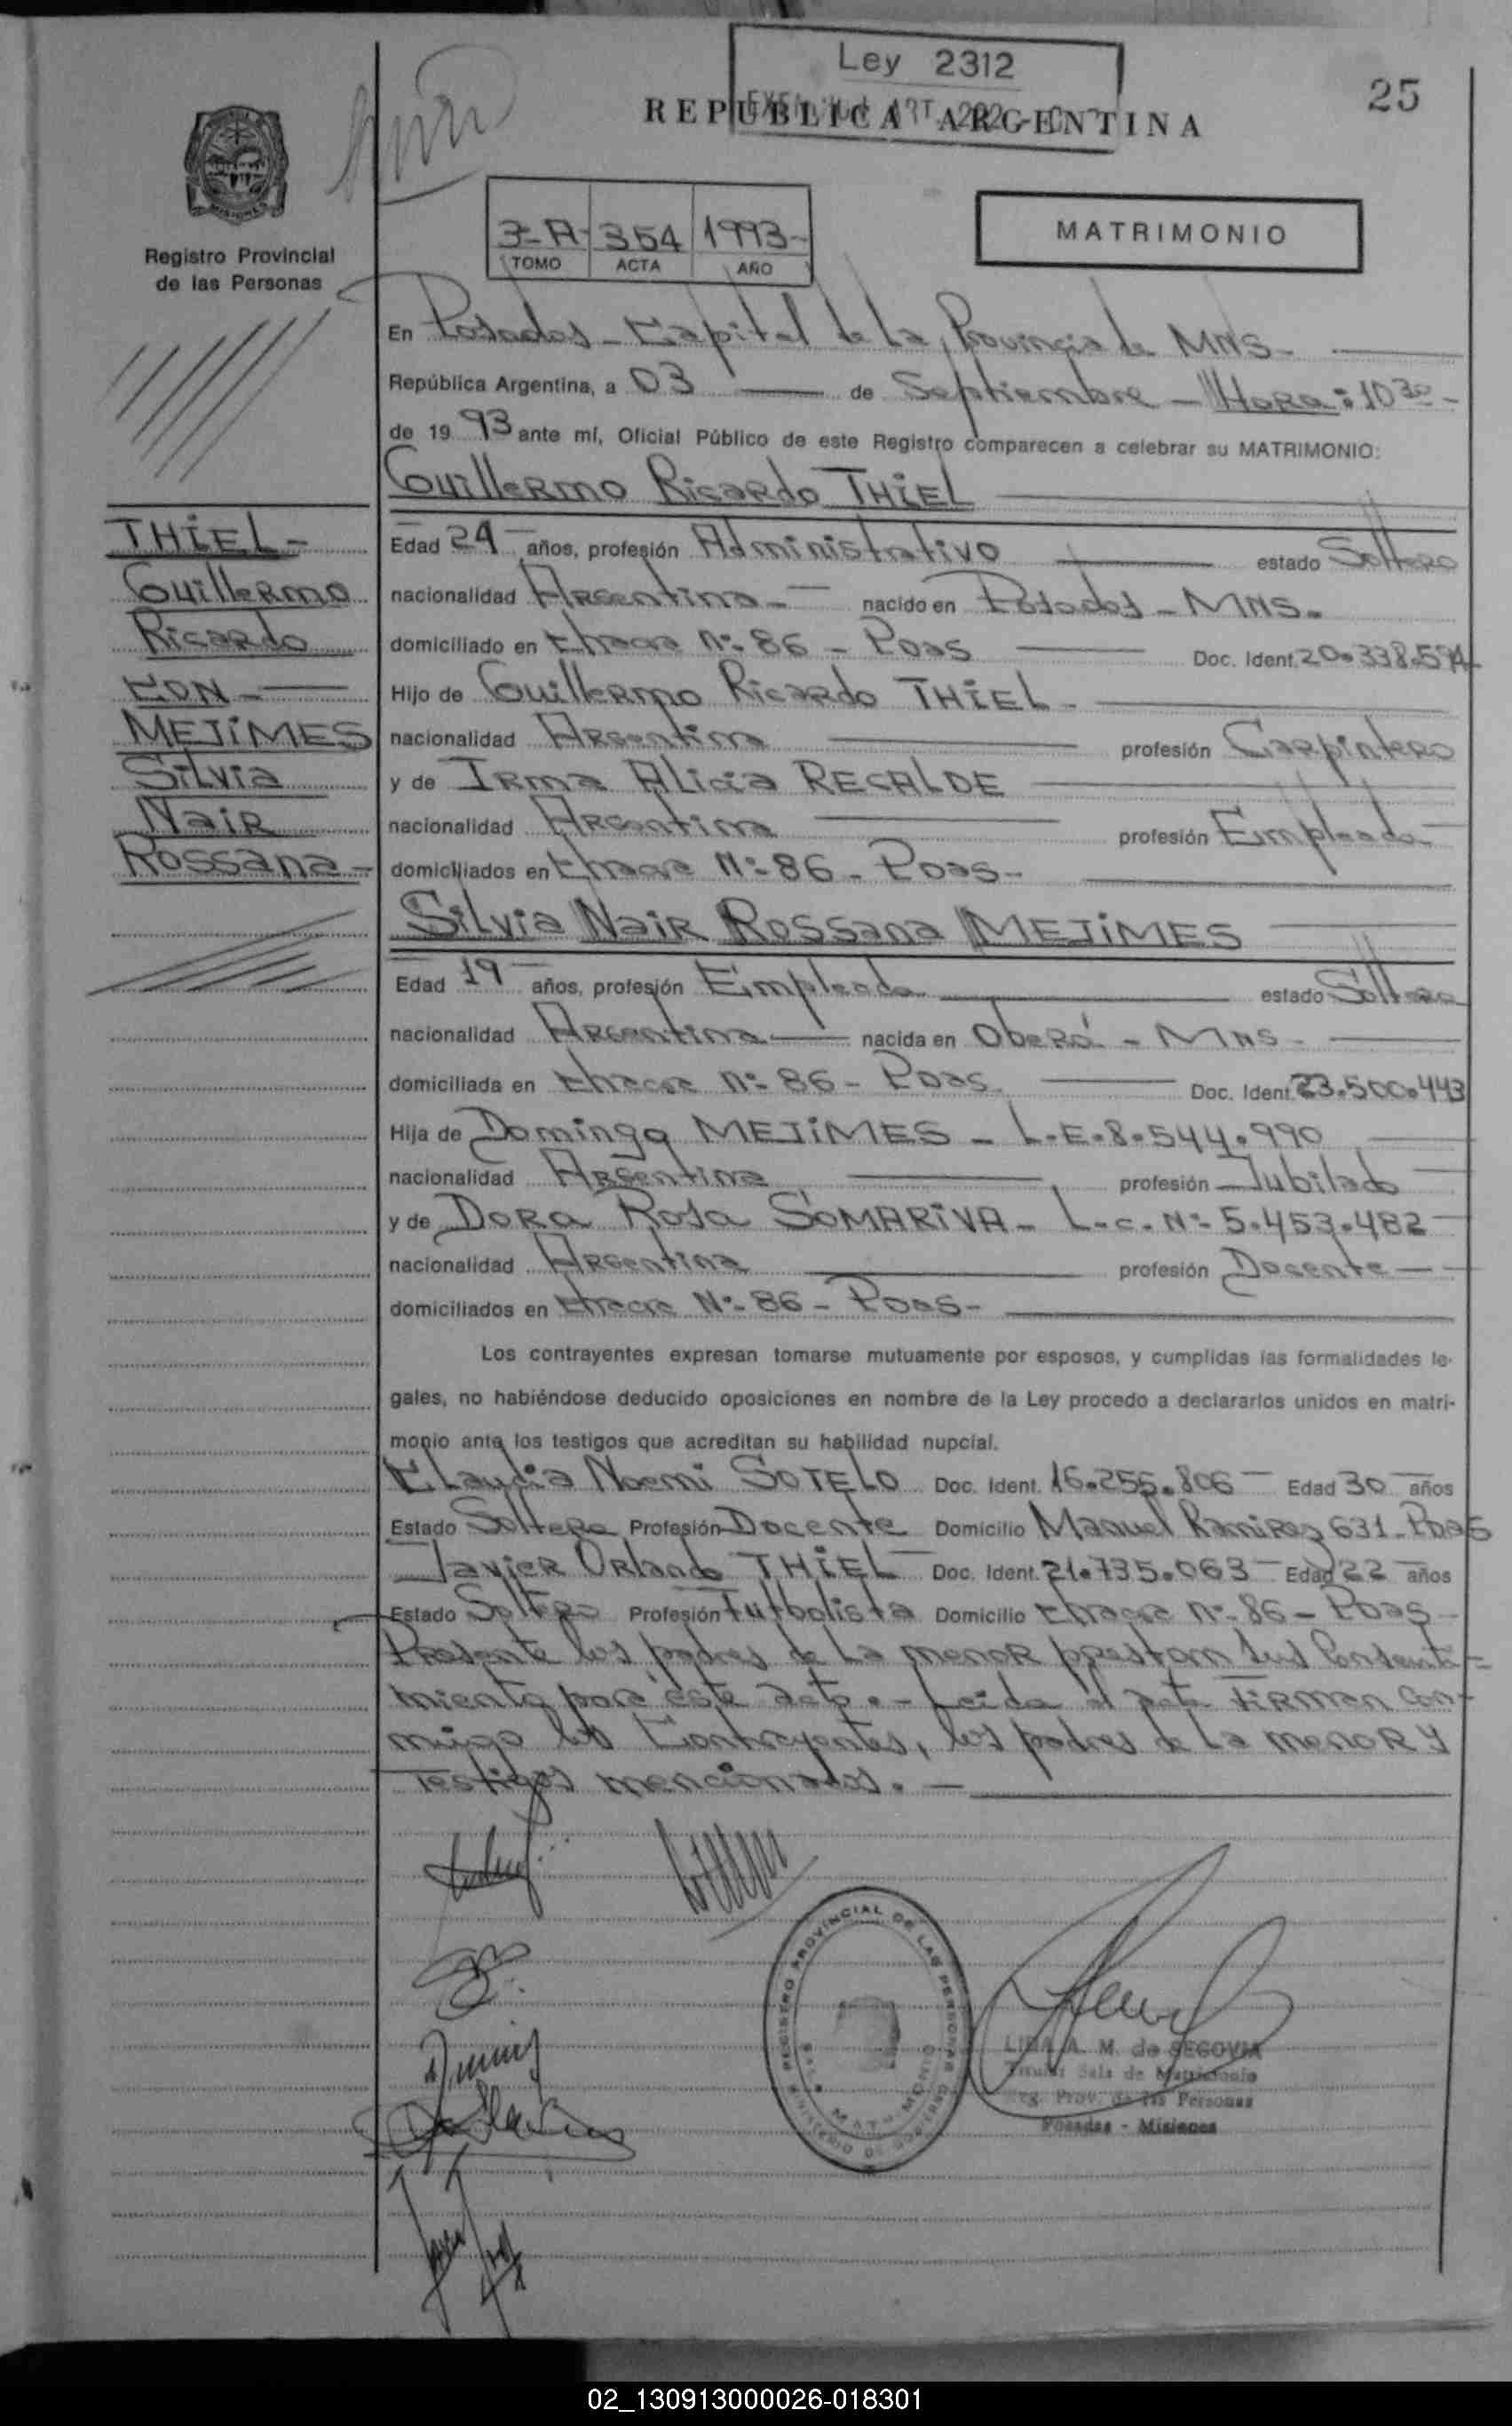 Ley 2312
25
REPUBLICA ARGENTINA
MISIONES
Registro Provincial
de las Personas
3-A- 354 1993-
TOMO ACTA AÑO
MATRIMONIO
En Posadas - Capital de la Provincia de MNS-
República Argentina, a 03 de Septiembre - Hora: 10 30 -
de 19 93 ante mí, Oficial Público de este Registro comparecen a celebrar su MATRIMONIO:
Guillermo Ricardo THIEL
THIEL-
Guillermo
Ricardo
CON -
METJIMES
Silvia
Nair
Rossana -
Edad 24 años, profesión Administrativo estado Soltero
nacionalidad Argentina - nacido en Posadas - MNS.
domiciliado en Chacra Nº 86 - Pdas Doc. Ident. 20.338.594
Hijo de Guillermo Ricardo THIEL -
nacionalidad Argentina profesión Carpintero
y de Irma Alicia RECALDE
nacionalidad Argentina profesión Empleada
domiciliados en Chacra Nº 86 - Pdas -
Silvia Nair Rossana METJIMES
Edad 19 años, profesión Empleada estado Soltera
nacionalidad Argentina nacida en Oberá - MNS -
domiciliada en Chacra Nº 86 - Pdas. Doc. Ident. 23.500.443
Hija de Domingo METJIMES - L.E. 8.544.990
nacionalidad Argentina profesión Jubilado
y de Dora Rosa SOMARIVA - L.C. Nº 5.453.482
nacionalidad Argentina profesión Docente
domiciliados en Chacra Nº 86 - Pdas -
Los contrayentes expresan tomarse mutuamente por esposos, y cumplidas las formalidades le-
gales, no habiéndose deducido oposiciones en nombre de la Ley procedo a declararlos unidos en matri-
monio ante los testigos que acreditan su habilidad nupcial.
Claudia Noemi SOTELO Doc. Ident. 16.256.806 Edad 30 años
Estado Soltera Profesión Docente Domicilio Manuel Ramirez 631 - Pdas
Javier Orlando THIEL Doc. Ident. 21.735.063 Edad 22 años
Estado Soltero Profesión Futbolista Domicilio Chacra Nº 86 - Pdas
Presente los padres de la menor prestam sus Consenti=
miento para este acto. - Leida el acta firman con-
migo los Contrayentes, los padres de la menor y
Testigos mencionados. -
REGISTRO PROVINCIAL DE LAS PERSONAS
MINISTERIO DE GOBIERNO
SALA MATRIMONIO
LIDA A. M. de SEGOVIA
Titular Sala de Matrimonio
Reg. Prov. de las Personas
Posadas - Misiones
02_130913000026-018301